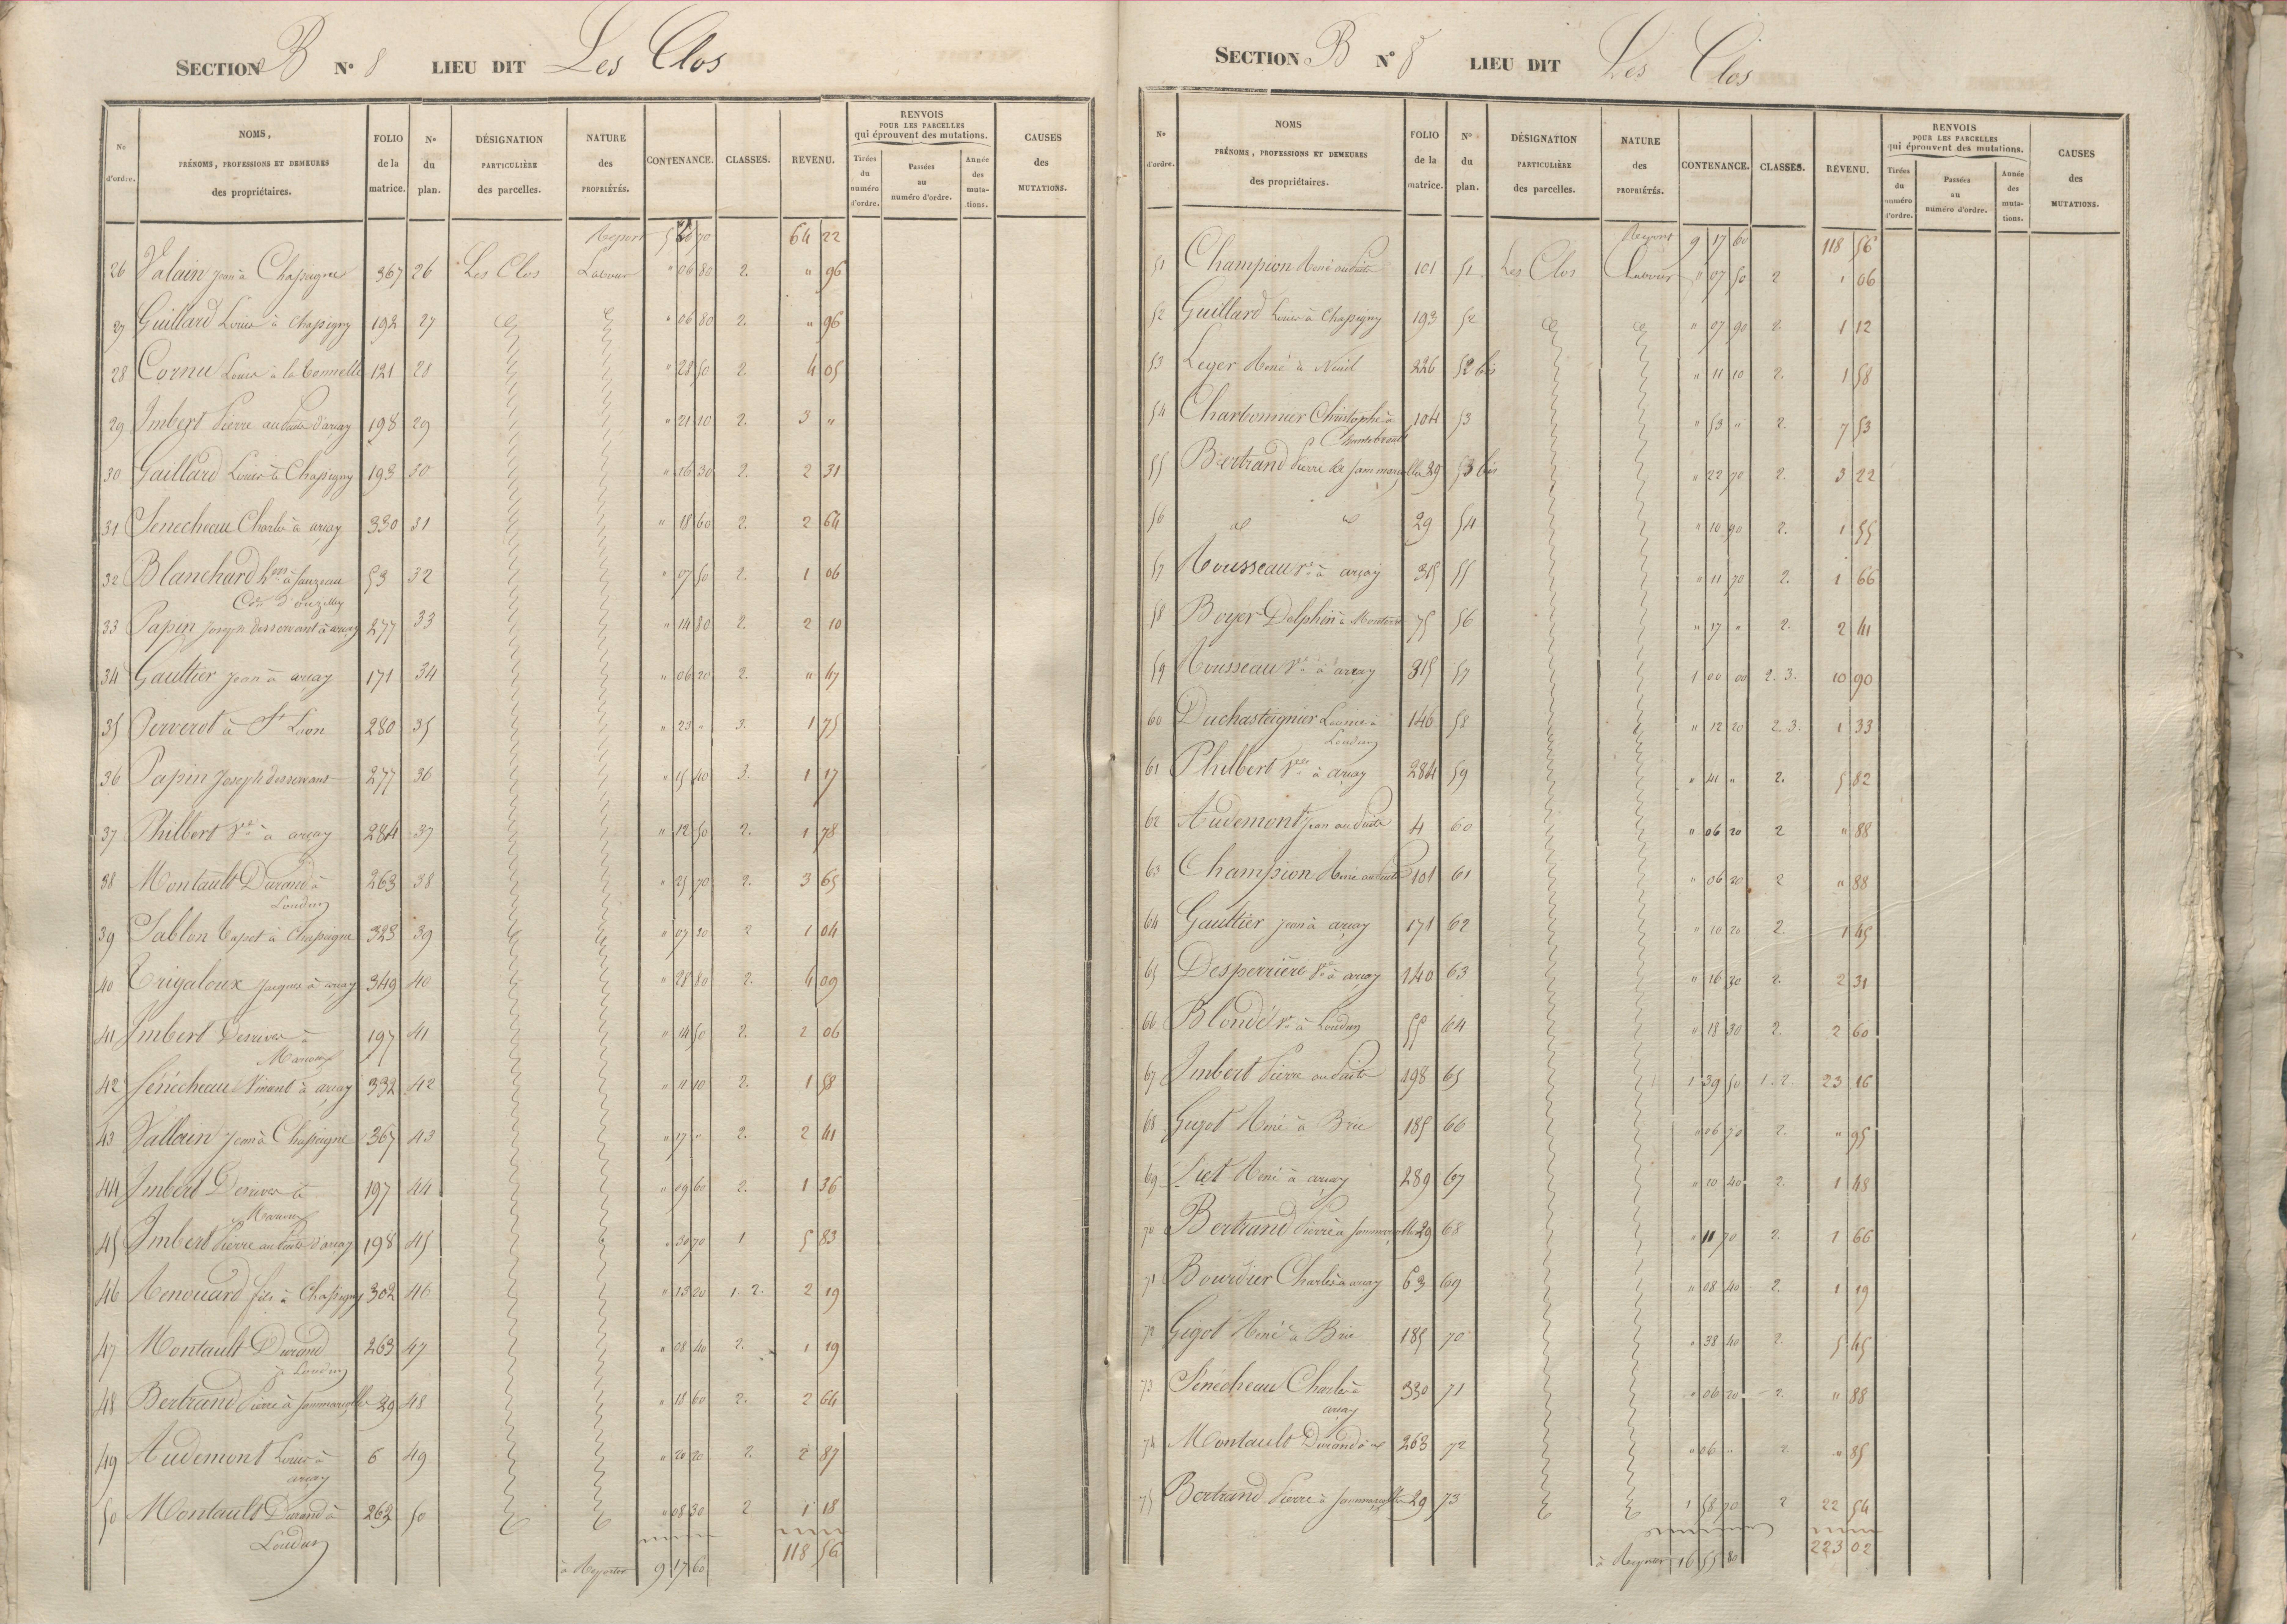 SECTION B N° 8 LIEU DIT Les Clos
N° d'ordre. NOMS, PRÉNOMS, PROFESSIONS ET DEMEURES des propriétaires. FOLIO de la matrice. N° du plan. DÉSIGNATION PARTICULIÈRE des parcelles. NATURE des PROPRIÉTÉS. CONTENANCE. CLASSES. REVENU. RENVOIS POUR LES PARCELLES qui éprouvent des mutations. Tirées du numéro d'ordre. Passées au numéro d'ordre. Année des mutations. CAUSES des MUTATIONS.
Report 70 64 22
26 Valain Jean à Chapigne 367 26 Les Clos Labour " 06 80 2. " 96
27 Guillard Louis à Chapigny 192 27 " 06 80 2. " 96
28 Cornu Louis à la Tonnelle 121 28 " 28 50 2. 4 05
29 Imbert Pierre au Puits d'arçay 198 29 " 21 10 2. 3 "
30 Gaillard Louis à Chapigny 193 30 " 16 30 2. 2 31
31 Senecheau Charles à arçay 330 31 " 18 60 2. 2 64
32 Blanchard à Sauzeau 53 32 " 07 50 2. 1 06
Cne d'ouzilly
33 Papin Joseph desservant à arçay 277 33 " 14 80 2. 2 10
34 Gaultier Jean à arçay 171 34 " 06 20 2. " 47
35 Perverot à St Léon 280 35 " 23 " 3. 1 75
36 Papin Joseph desservant 277 36 " 15 40 3. 1 17
37 Philbert Vve à arçay 284 37 " 12 50 2. 1 78
38 Montault Durand à 263 38 " 25 70 2. 3 65
Loudun
39 Sablon Tapet à Chapigne 323 39 " 07 30 2 1 04
40 Trigaloux Jacques à arçay 349 40 " 28 80 2. 4 09
41 Imbert Desrives à 197 41 " 14 50 2. 2 06
42 Sénécheau Vincent à arçay 332 42 " 11 10 2. 1 58
43 Vallain Jean à Chapigne 367 43 " 17 " 2. 2 41
44 Imbert Desrives à 197 44 " 09 60 2. 1 36
45 Imbert Pierre au Puits d'arçay 198 45 " 30 70 1 5 83
46 Renouard fils à Chapigny 302 46 " 13 20 1. 2. 2 19
47 Montault Durand 263 47 " 08 40 2. 1 19
à Loudun
48 Bertrand Pierre à Sammarçolles 29 48 " 18 60 2. 2 64
49 Audemont Louis à 6 49 " 20 20 2. 2 87
arçay
50 Montault Durand à 263 50 " 08 30 2 1 18
Loudun
à Reporter 9 17 60 118 56
SECTION B N° 8 LIEU DIT Les Clos
N° d'ordre. NOMS PRÉNOMS, PROFESSIONS ET DEMEURES des propriétaires. FOLIO de la matrice. N° du plan. DÉSIGNATION PARTICULIÈRE des parcelles. NATURE des PROPRIÉTÉS. CONTENANCE. CLASSES. REVENU. RENVOIS POUR LES PARCELLES qui éprouvent des mutations. Tirées du numéro d'ordre. Passées au numéro d'ordre. Année des mutations. CAUSES des MUTATIONS.
Report 9 17 60 118 56
51 Champion René au Puits 101 51 Les Clos Labour " 07 50 2 1 06
52 Guillard Louis à Chapigny 193 52 " 07 90 2. 1 12
53 Leger René à Nueil 226 52 bis " 11 10 2. 1 58
54 Charbonnier Christophe à 104 53 " 53 " 2. 7 53
55 Bertrand Pierre de Sammarçolles 29 53 bis " 22 70 2. 3 22
56 d° d° 29 54 " 10 90 2. 1 55
57 Rousseau Vve à arçay 315 55 " 11 70 2. 1 66
58 Boyer Delphin à 75 56 " 17 " 2. 2 41
59 Rousseau Vve à arçay 315 57 1 00 00 2. 3. 10 90
60 Duchasteignier Léonce à 146 58 " 12 20 2. 3. 1 33
Loudun
61 Philbert Vve à arçay 284 59 " 41 " 2. 5 82
62 Audemont Jean au Puits 4 60 " 06 20 2 " 88
63 Champion René au Puits 101 61 " 06 20 2 " 88
64 Gaultier Jean à arçay 171 62 " 10 20 2. 1 45
65 Desperrière Vve à arçay 140 63 " 16 30 2. 2 31
66 Blondé Vve à Loudun 55 64 " 18 30 2. 2 60
67 Imbert Pierre au Puits 198 65 1 39 50 1. 2. 23 16
68 Gigot René à Brie 185 66 " 06 70 2. " 95
69 Piet René à arçay 289 67 " 10 40 2. 1 48
70 Bertrand Pierre à Sammarçolles 29 68 " 11 70 2. 1 66
71 Bourdier Charles à arçay 63 69 " 08 40 2. 1 19
72 Gigot René à Brie 185 70 " 38 40 2. 5 45
73 Sénécheau Charles à 330 71 " 06 20 2. " 88
arçay
74 Montault Durand à 263 72 " 06 " 2 " 85
75 Bertrand Pierre à Sammarçolles 29 73 1 58 70 2 22 54
à Reporter 16 55 80 223 02